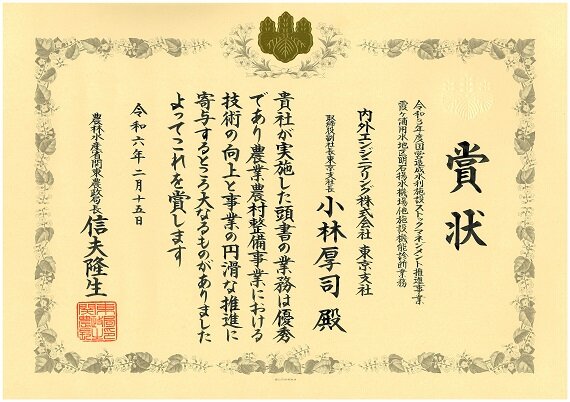 賞状
令和5年度国営造成水利施設ストックマネジメント推進事業
霞ヶ浦用水地区明石揚水機場他施設機能診断業務
内外エンジニアリング株式会社 東京支社
取締役副社長東京支社長 小林厚司 殿
貴社が実施した頭書の業務は優秀
であり農業農村整備事業における
技術の向上と事業の円滑な推進に
寄与するところ大なるものがありました
よってこれを賞します
令和六年二月十五日
農林水産省関東農政局長 信夫隆生